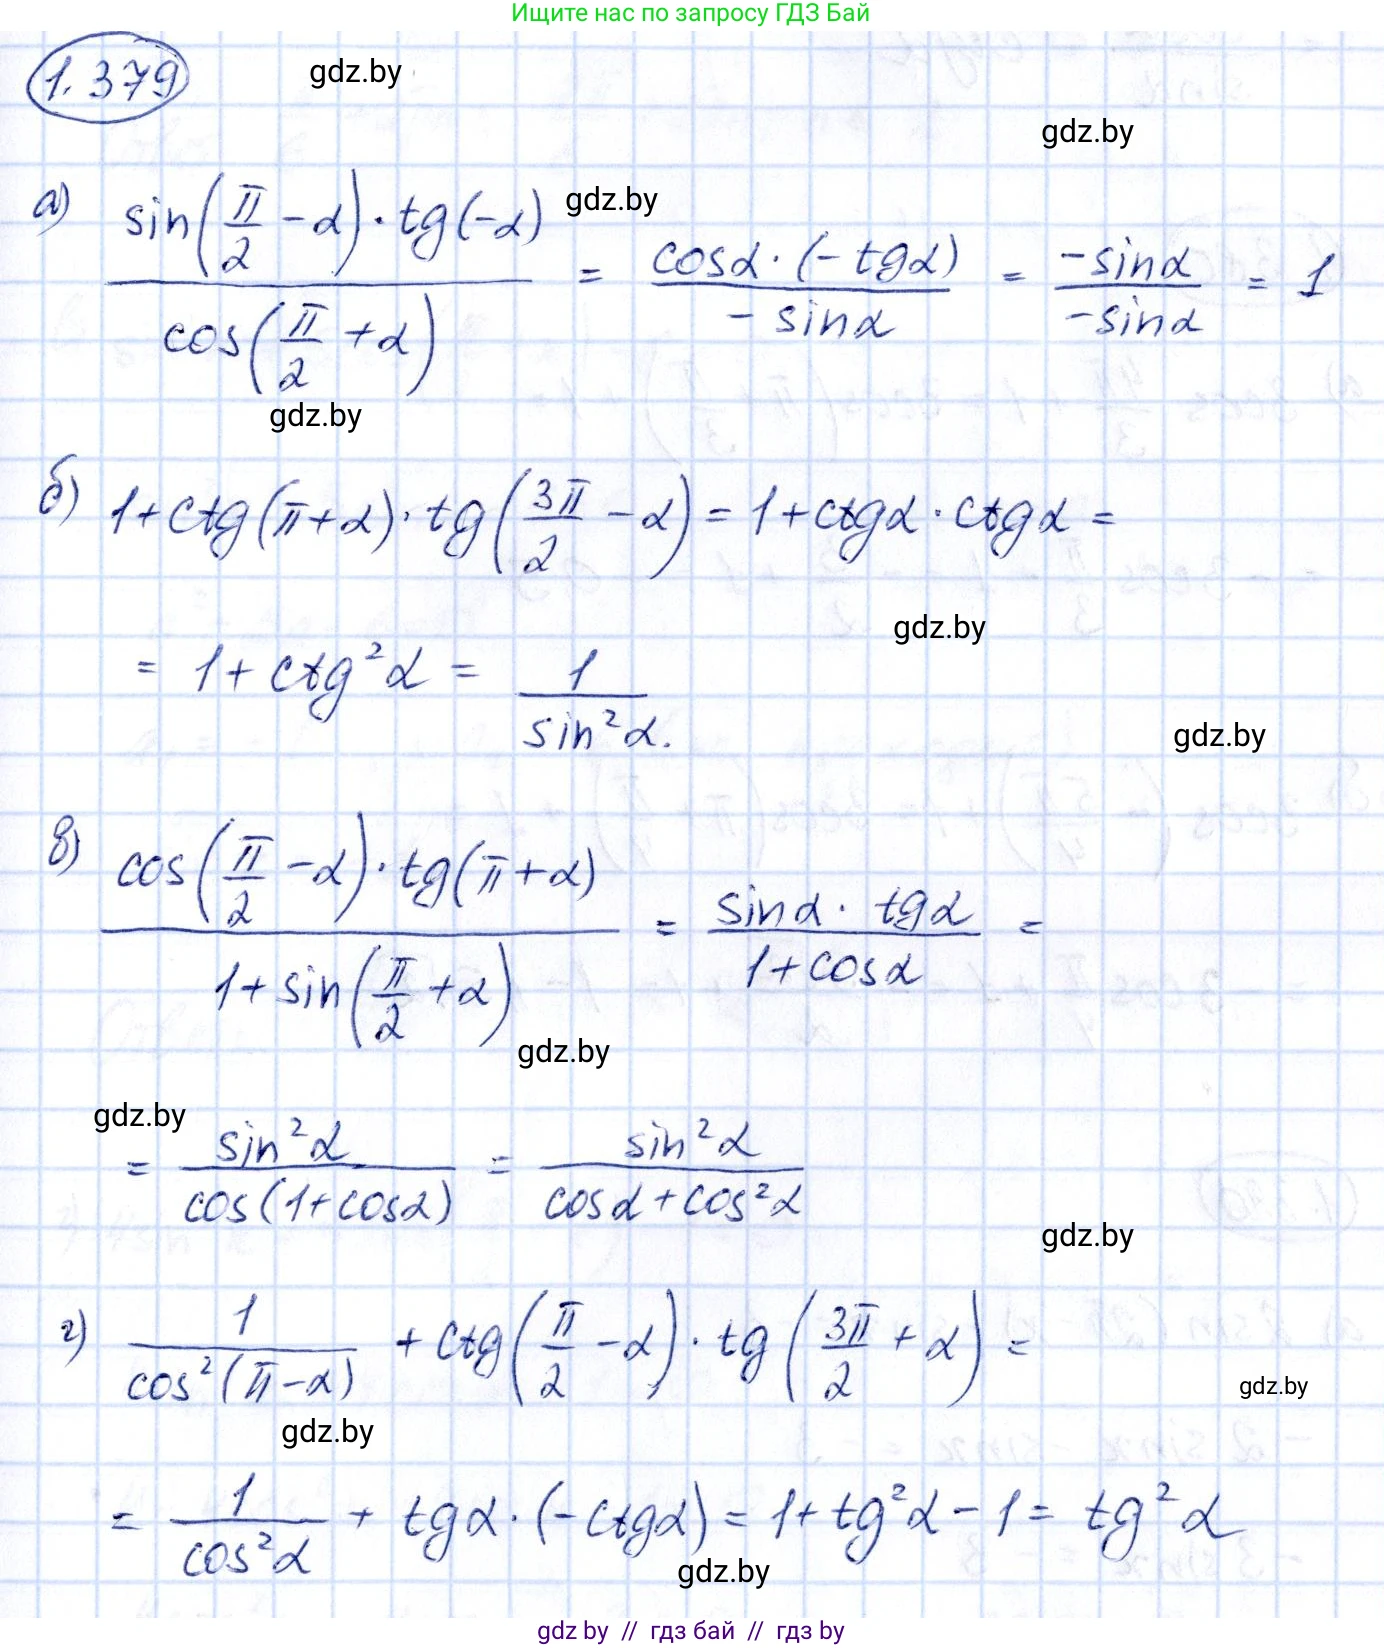 Ищите нас по запросу ГДЗ Бай
1.379
gdz.by
gdz.by
а) sin(π/2 − α) · tg(−α) / cos(π/2 + α) = cosα · (−tgα) / −sinα = −sinα / −sinα = 1
gdz.by
gdz.by
б) 1 + ctg(π + α) · tg(3π/2 − α) = 1 + ctgα · ctgα =
gdz.by
= 1 + ctg²α = 1 / sin²α.
gdz.by
в) cos(π/2 − α) · tg(π + α) / 1 + sin(π/2 + α) = sinα · tgα / 1 + cosα =
gdz.by
gdz.by
= sin²α / cos(1 + cosα) = sin²α / cosα + cos²α
gdz.by
г) 1 / cos²(π − α) + ctg(π/2 − α) · tg(3π/2 + α) =
gdz.by
gdz.by
= 1 / cos²α + tgα · (−ctgα) = 1 + tg²α − 1 = tg²α
gdz.by
gdz.by // гдз бай // гдз by